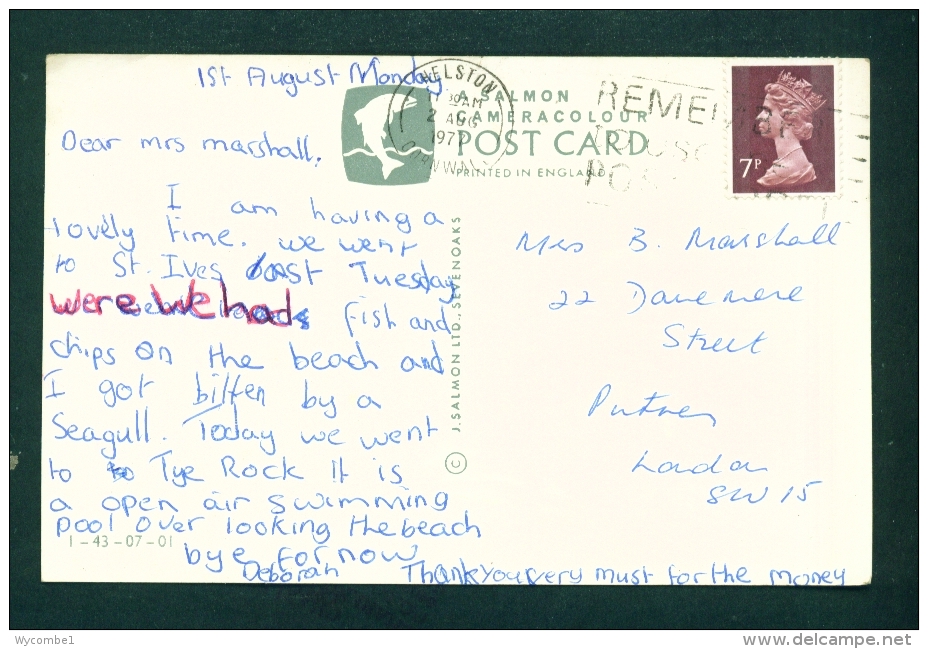 1st August Monday
Dear mrs marshall.
I am having a
lovely time. we went
to St. Ives last Tuesday
were we had fish and
chips on the beach and
I got bitten by a
Seagull. Today we went
to to Tye Rock It is
a open air swimming
pool over looking the beach
bye for now
Deborah
Thankyou very must for the money
1-43-07-01
HELSTON
30 AM
2 AUG
1977
CORNWALL
A SALMON
CAMERACOLOUR
POST CARD
PRINTED IN ENGLAND
REMEMBER
TO USE
POST
7P
© J. SALMON LTD., SEVENOAKS
Mrs B. Marshall
22 Danemere
Street
Putney
London
SW15
Wycombe1
www.delcampe.net